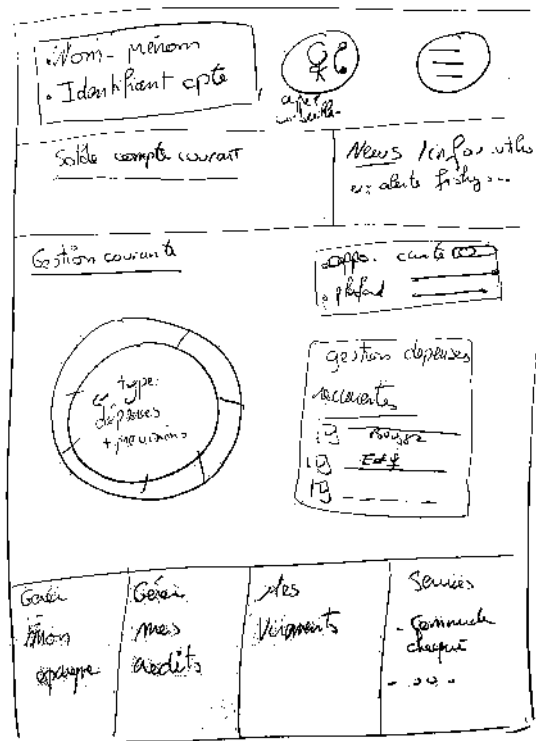 • Nom - prénom
• Identifiant cpte
Solde compte courant
News / infos utiles
ex: alerte fishing ...
Gestion courante
• oppo. carte
• plafond
type
dépenses
+ prévisions
gestion dépenses
récurrentes
EDF
Gérer
Mon
épargne
Gérer
mes
crédits
Mes
Virements
Services
- commande
chequier
- ...